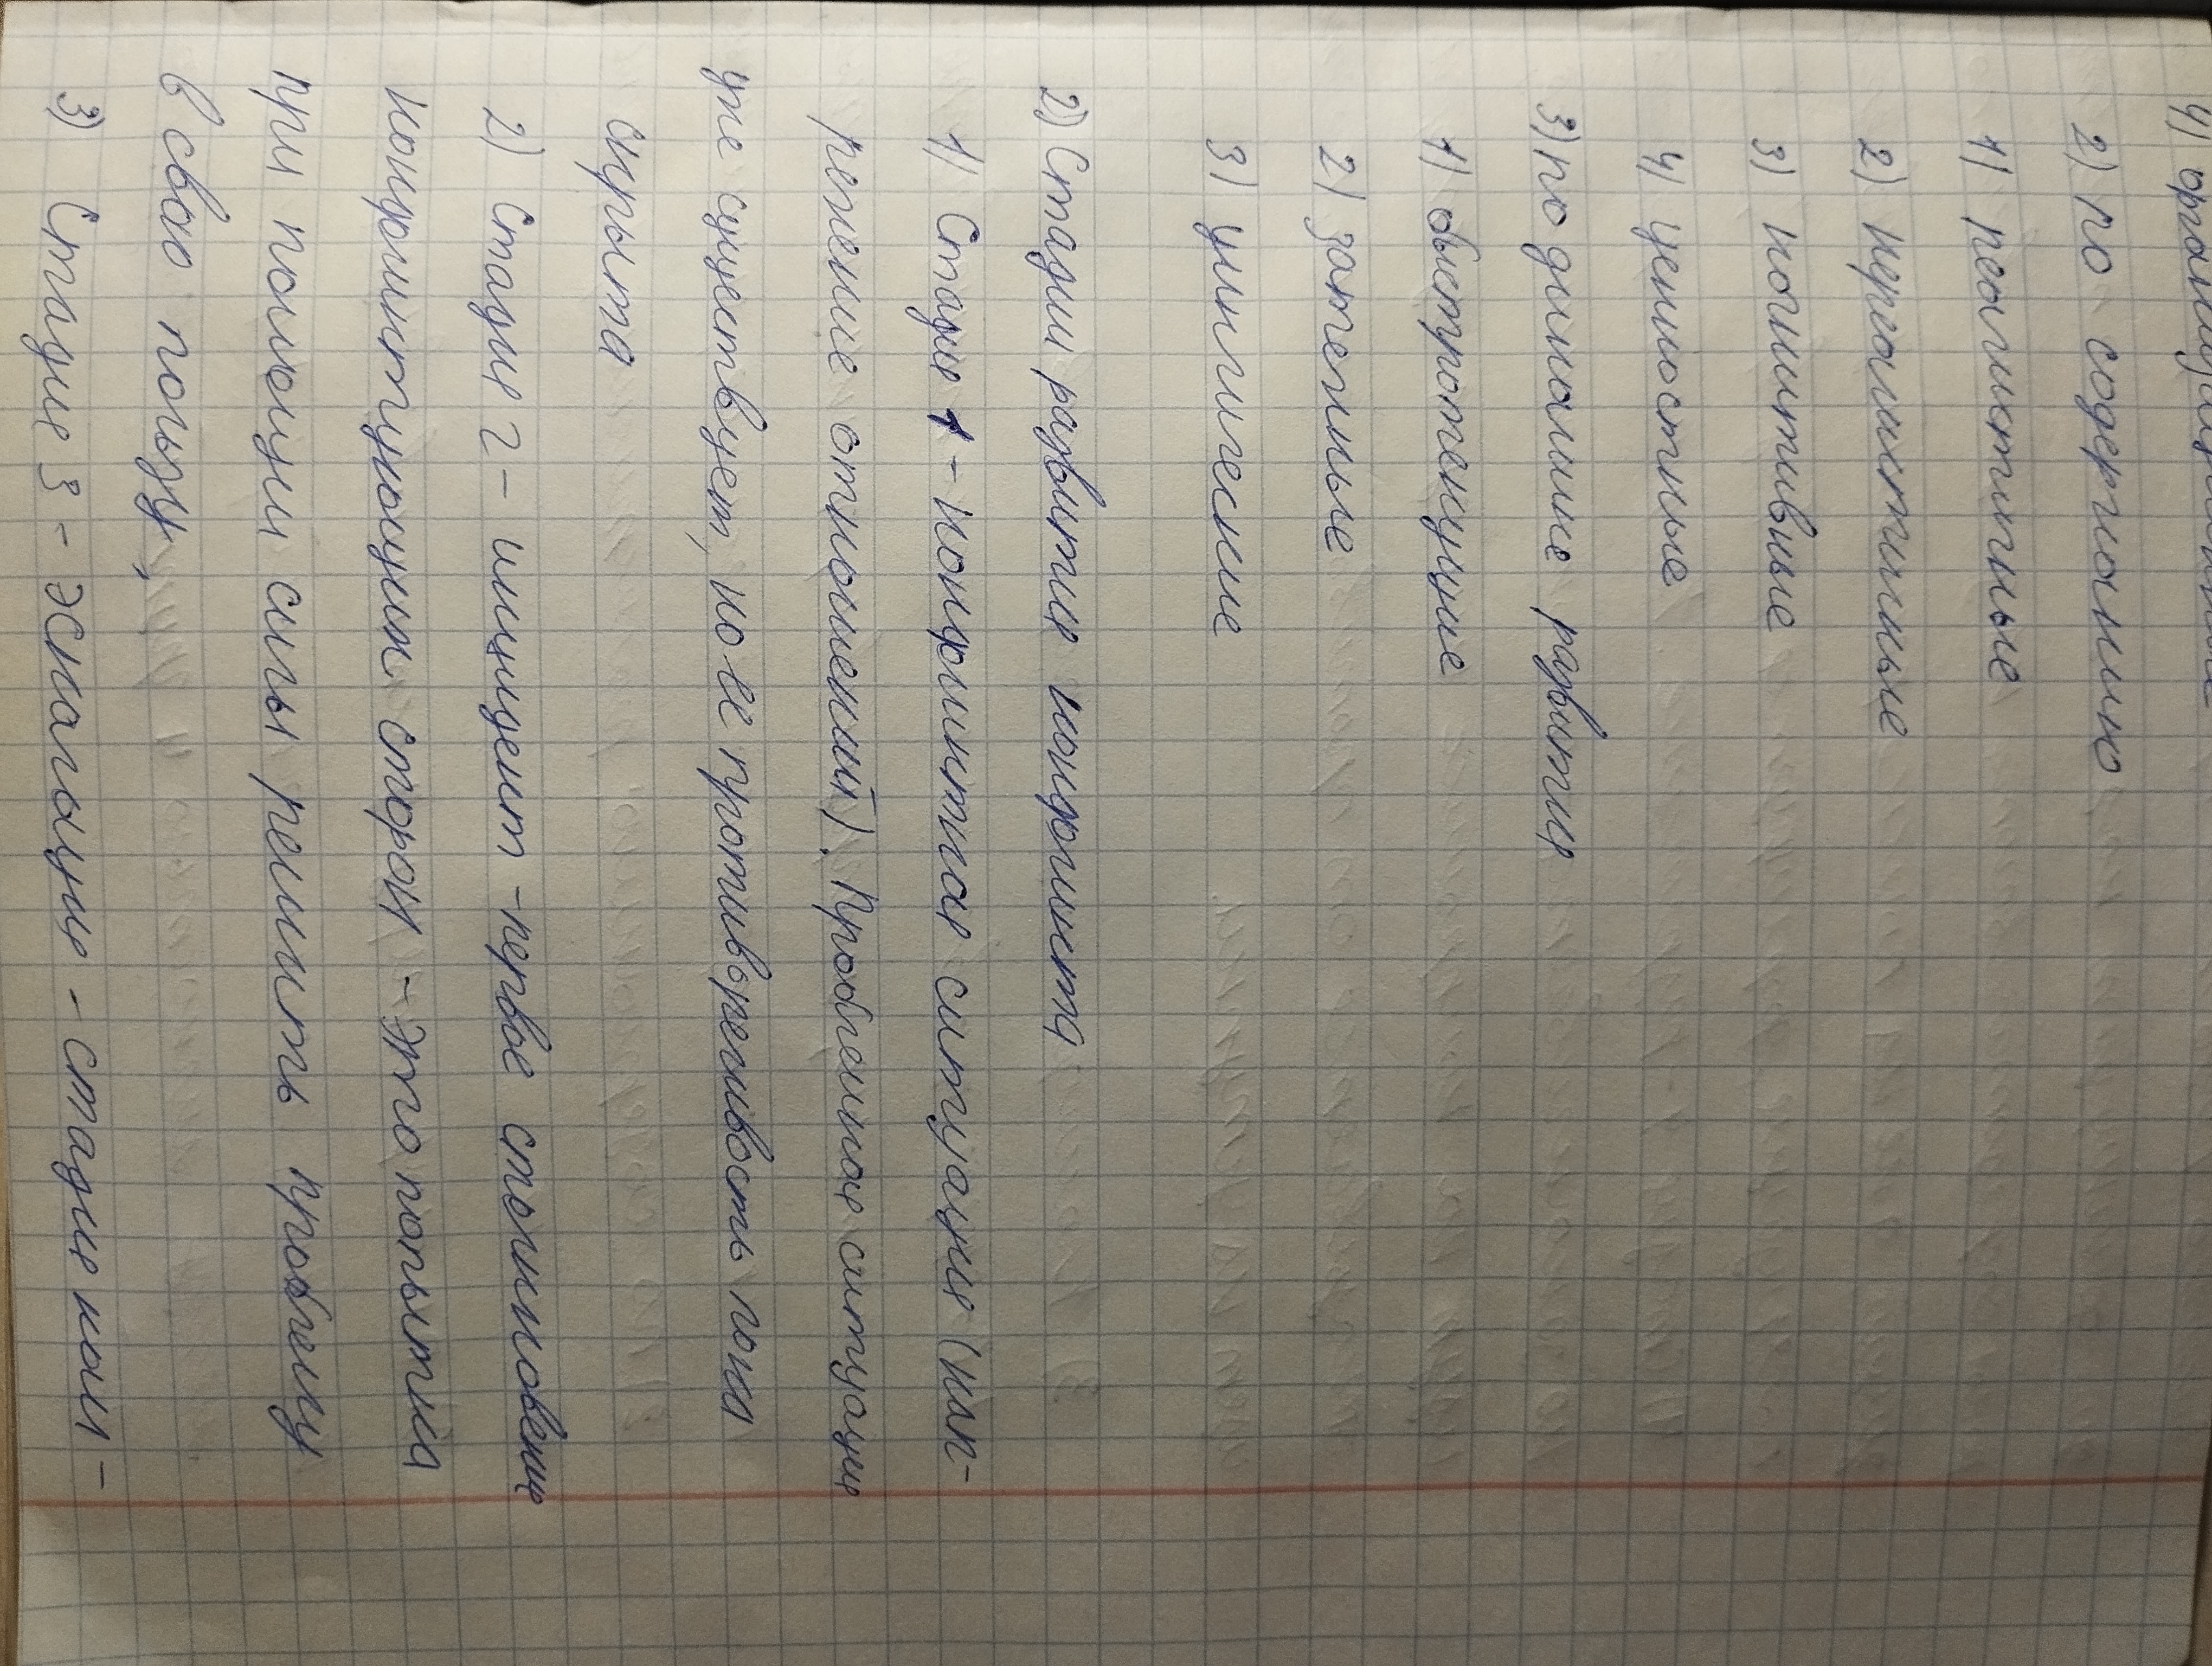 2) по содержанию
1) реалистичные
2) нереалистичные
3) когнитивные
4) ценностные
3) по динамике развития
1) быстротекущие
2) затяжные
3) циклические
2) Стадии развития конфликта
1) Стадия 1 - конфликтная ситуация (нап-
ряжение отношений). Проблемная ситуация
уже существует, но её противоречивость пока
скрыта
2) Стадия 2 - инцидент - первое столкновение
конфликтующих сторон - это попытка
при помощи силы решить проблему
в свою пользу,
3) Стадия 3 - эскалация - стадия кон-